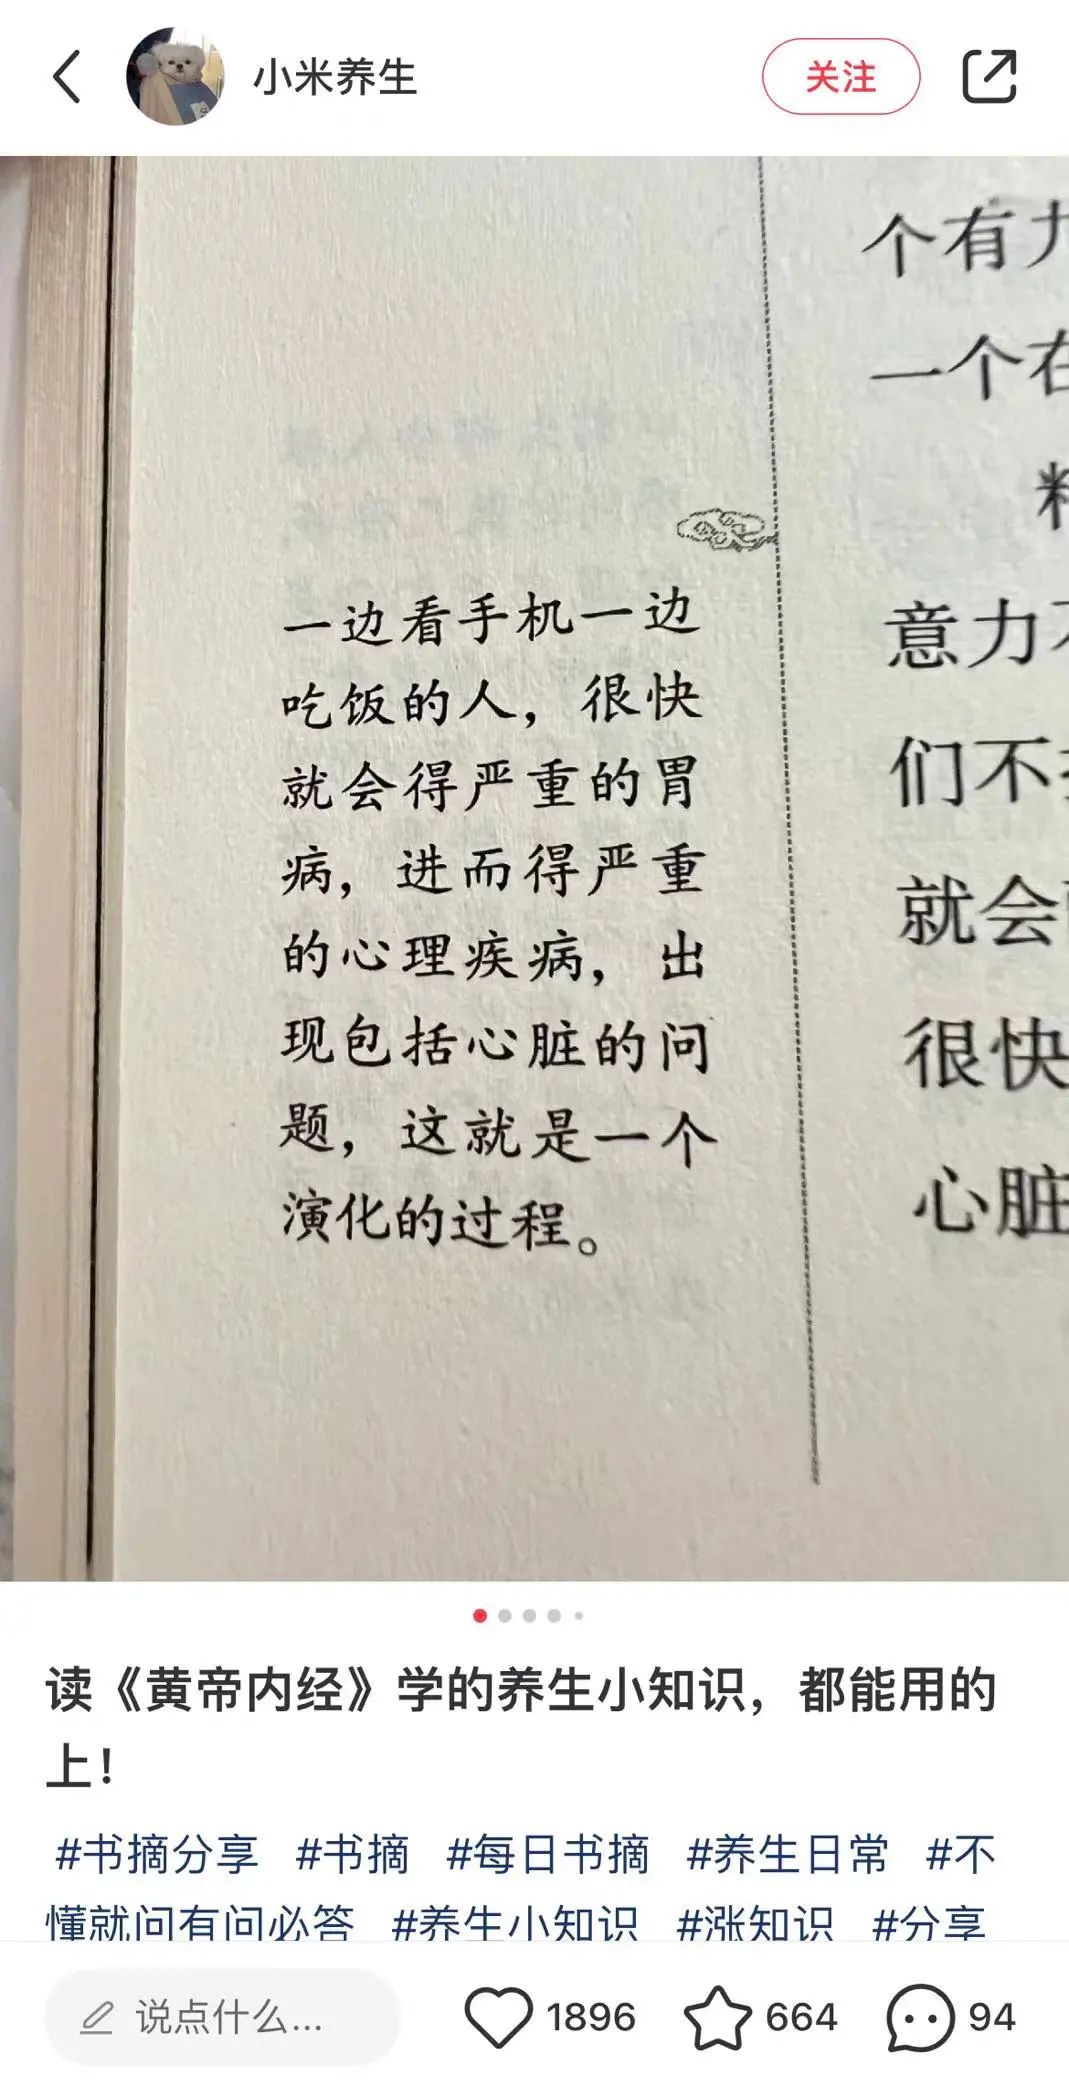 小米养生
关注
个有
一个在
意力不
们不
就会
很快
心脏
一边看手机一边
吃饭的人，很快
就会得严重的胃
病，进而得严重
的心理疾病，出
现包括心脏的问
题，这就是一个
演化的过程。
读《黄帝内经》学的养生小知识，都能用的
上！
#书摘分享 #书摘 #每日书摘 #养生日常 #不
懂就问有问必答 #养生小知识 #涨知识 #分享
说点什么...
1896
664
94